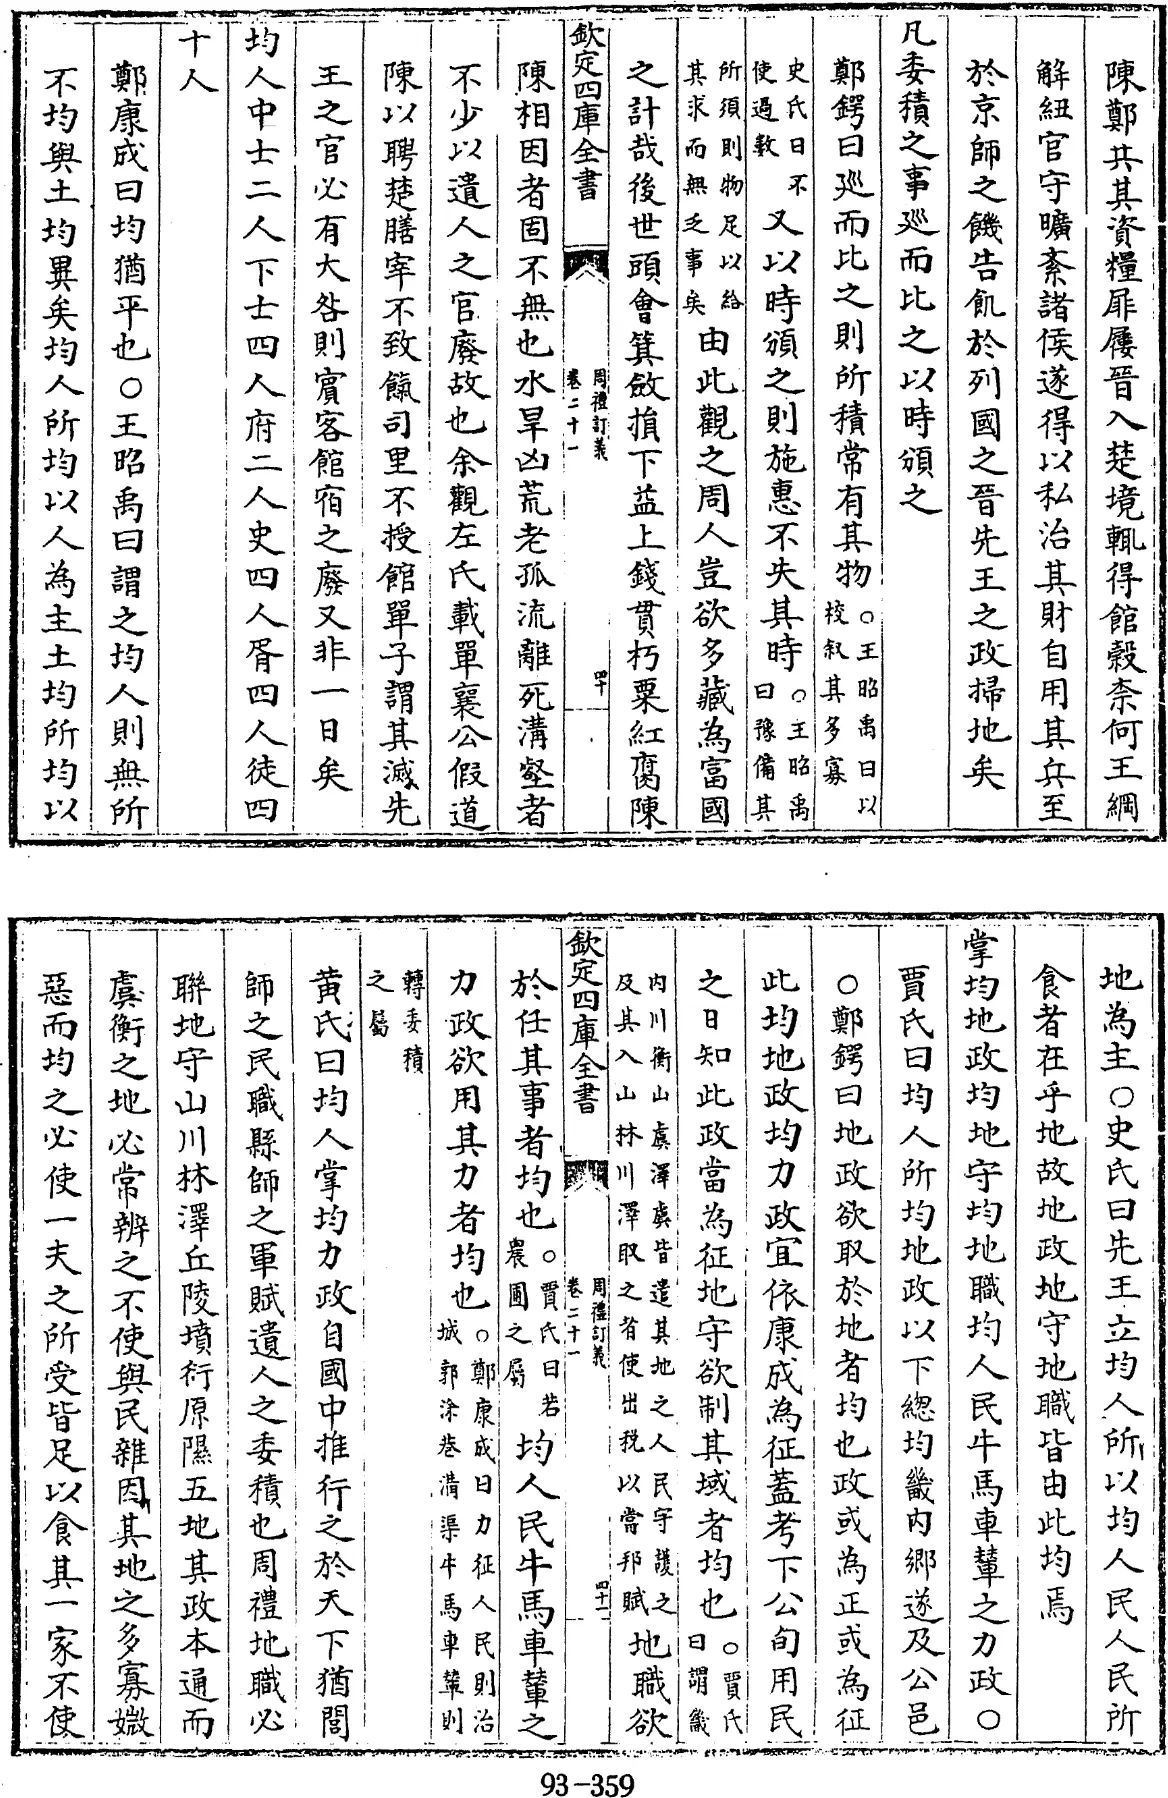 陳鄭共其資糧屝屨晉入楚境輒得館穀柰何王綱
解紐官守曠紊諸侯遂得以私治其財自用其兵至
於京師之饑告飢於列國之晉先王之政掃地矣
凡委積之事廵而比之以時頒之
鄭鍔曰廵而比之則所積常有其物○王昭禹曰以校叙其多寡
史氏曰不使過數又以時頒之則施惠不失其時○王昭禹曰豫備其
所須則物足以給其求而無乏事矣由此觀之周人豈欲多藏為富國
之計哉後世頭會箕斂損下益上錢貫朽粟紅腐陳
欽定四庫全書 周禮訂義 卷二十一 四十
陳相因者固不無也水旱凶荒老孤流離死溝壑者
不少以遺人之官廢故也余觀左氏載單襄公假道
陳以聘楚膳宰不致餼司里不授館單子謂其滅先
王之官必有大咎則賔客館宿之廢又非一日矣
均人中士二人下士四人府二人史四人胥四人徒四
十人
鄭康成曰均猶平也○王昭禹曰謂之均人則無所
不均與土均異矣均人所均以人為主土均所均以
地為主○史氏曰先王立均人所以均人民人民所
食者在乎地故地政地守地職皆由此均焉
掌均地政均地守均地職均人民牛馬車輦之力政○
賈氏曰均人所均地政以下總均畿内鄉遂及公邑
○鄭鍔曰地政欲取於地者均也政或為正或為征
此均地政均力政宜依康成為征蓋考下公旬用民
之日知此政當為征地守欲制其域者均也○賈氏曰謂畿
内川衡山虞澤虞皆遣其地之人民守護之及其入山林川澤取之者使出稅以當邦賦地職欲
欽定四庫全書 周禮訂義 卷二十一 四十一
於任其事者均也○賈氏曰若農圃之屬均人民牛馬車輦之
力政欲用其力者均也○鄭康成曰力征人民則治城郭涂巷溝渠牛馬車輦則
轉委積之屬
黄氏曰均人掌均力政自國中推行之於天下猶閭
師之民職縣師之軍賦遺人之委積也周禮地職必
聯地守山川林澤丘陵墳衍原隰五地其政本通而
虞衡之地必常辨之不使與民雜因其地之多寡媺
惡而均之必使一夫之所受皆足以食其一家不使
93-359